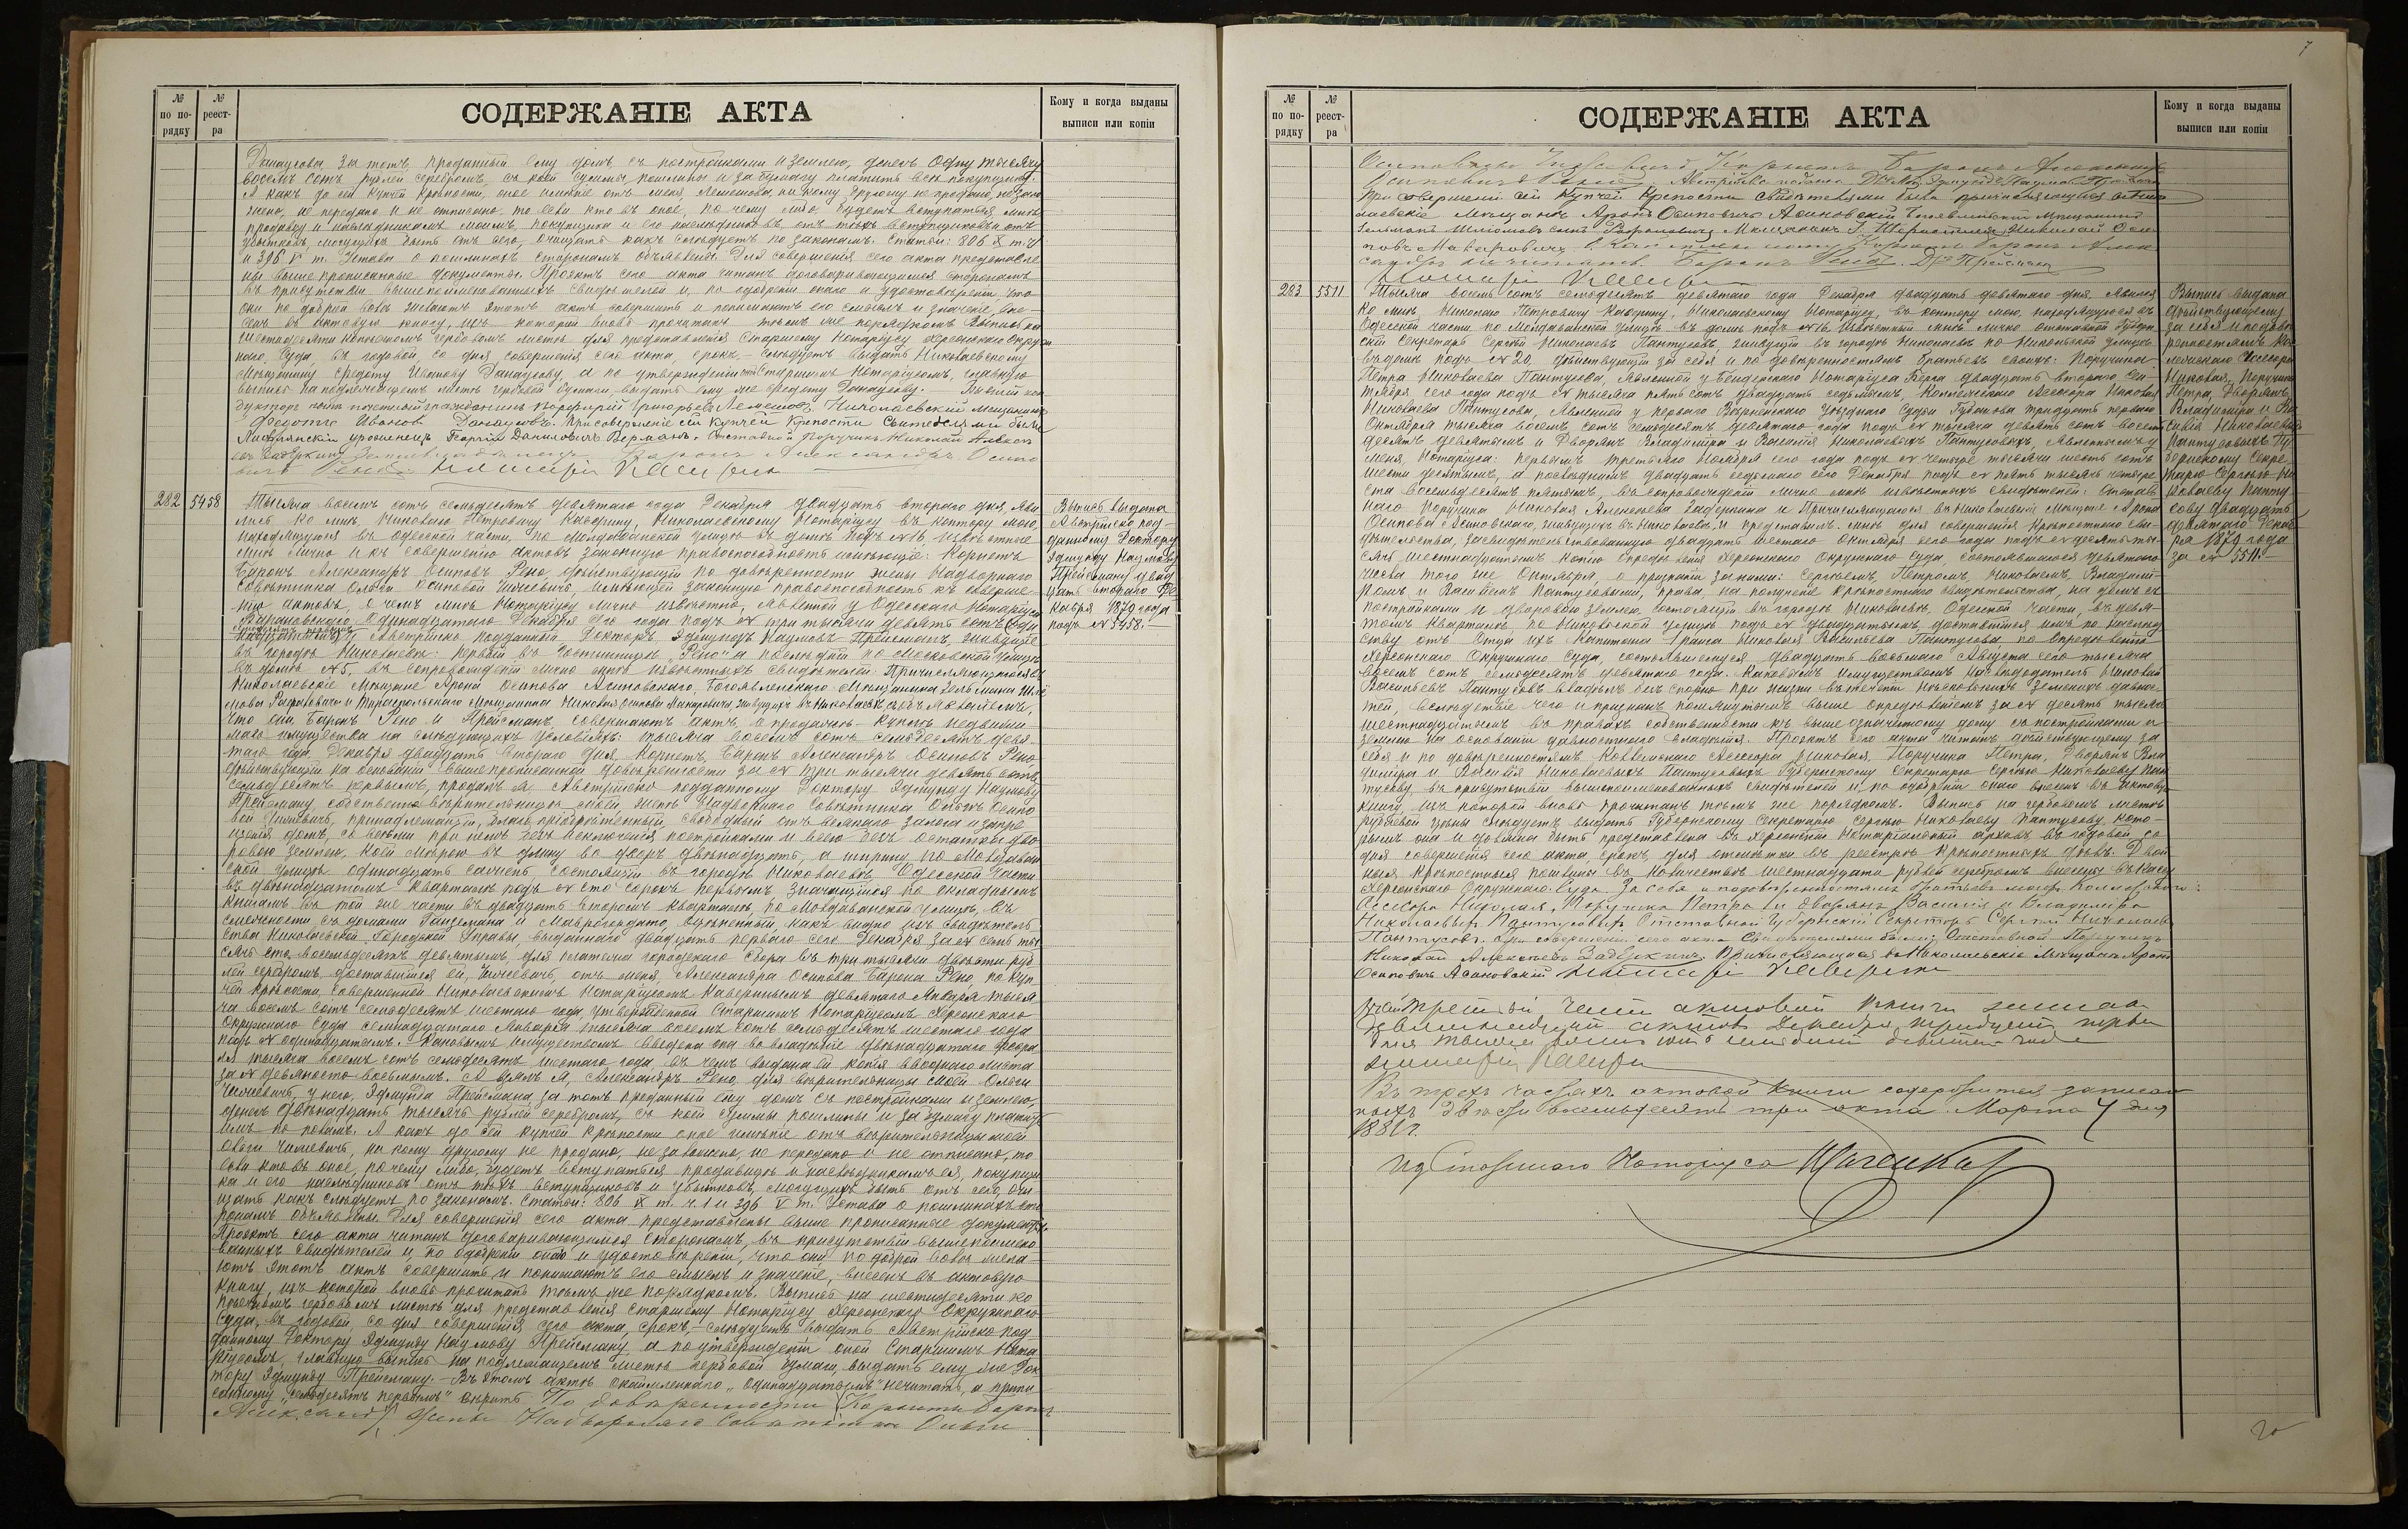 № по по-рядку
№ реест-ра
СОДЕРЖАНІЕ АКТА
Кому и когда выданы выписи или копіи
Данаусова за тотъ проданный ему домъ съ постройками и землею, денегъ Одну тысячу
восемь сотъ рублей серебромъ, съ коей суммы пошлины и за бумагу платить всѣ покупщику.
А какъ до сей купчей крѣпости, оное имѣніе отъ меня, Лемешова, ни кому другому не продано, не зало
жено, не передано и не отписано, то если кто въ оное, по чему либо, будетъ вступаться, мнѣ,
продавцу и наслѣдникамъ моимъ, покупщика и его наслѣдниковъ, отъ тѣхъ вступщиковъ и отъ
убытковъ, могущихъ быть отъ сего, очищать какъ слѣдуетъ по законамъ. Статьи: 806 X т. ч. I
и 396 V т. Устава о пошлинахъ сторонамъ объявлены. Для совершенія сего акта представле
ны выше прописанные документы. Проэктъ сего акта читанъ договаривающимся сторонамъ,
въ присутствіи вышепоименованныхъ свидѣтелей и, по одобреніи онаго и удостовѣреніи, что
они по доброй волѣ желаютъ этотъ актъ совершить и понимаютъ его смыслъ и значеніе, вне
сенъ въ актовую книгу, изъ которой вновь прочитанъ тѣмъ же порядкомъ. Выпись на
шестидесяти копѣечномъ гербовомъ листѣ для представленія Старшему Нотаріусу Херсонскаго Окруж
наго Суда, въ годовой, со дня совершенія сего акта, срокъ, слѣдуетъ выдать Николаевскому
мѣщанину Федоту Иванову Данаусову, а по утвержденіи оной Старшимъ Нотаріусомъ, главную
выпись на подлежащемъ листѣ гербовой бумаги, выдать ему же Федоту Данаусову.
почетный гражданинъ Порфирій Григорьевъ Лемешовъ. Николаевскій мещанинъ
Федотъ Ивановъ Данаусовъ. При совершеніе сей Купчей Крѣпости Свитетелями были
уроженецъ Георгій Даниловичъ Берманъ. Отставной Поручикъ Николай Алексѣ
евъ Задёркинъ Баронъ Александръ Осипо
вичъ Рено. Нотаріусъ Каверинъ
282 5458
Тысяча восемь сотъ семьдесятъ девятаго года Декабря двадцать втораго дня, яви
лись ко мнѣ, Николаю Петровичу Каверину, Николаевскому Нотаріусу въ контору мою,
находящуюся въ Одесской части, по Молдаванской улицѣ въ домѣ подъ № 16, извѣстные
мнѣ лично и къ совершенію актовъ законную правоспособность имѣющіе: Корнетъ
Баронъ Александръ Осиповъ Рено, дѣйствующій по довѣренности жены Надворнаго
Совѣтника Ольги Осиповой Чичкевичъ, имѣющей законную правоспособность къ соверше
нію актовъ, о чемъ мнѣ Нотаріусу лично извѣстно, явленной у Одесскаго Нотаріуса
Барановскаго, Одинадцатаго Декабря сего года подъ № три тысячи девять сотъ
Австрійско подданный, Докторъ Эдмундъ Наумовъ Прейсманъ, живущіе
въ городѣ Николаевѣ: первый въ гостинницѣ „Рено“ а послѣдній по Московской улицѣ
въ домѣ № 5, въ сопровожденіи лично мнѣ извѣстныхъ свидѣтелей: Причисляющагося въ
Николаевскіе Мѣщане Арона Осипова Асиновскаго, Богоявленскаго Мѣщанина Зельмана Шле
мова Рафаловича и Тираспольскаго Мѣщанина Николая Осипова Макаровича, живущихъ въ Николаевѣ, съ объявленіемъ,
что они, Баронъ Рено и Прейсманъ, совершаютъ актъ, о продажѣ-купкѣ недвижи
маго имущества на слѣдующихъ условіяхъ: тысяча восемь сотъ семьдесятъ девя
таго года, Декабря двадцать втораго дня, Корнетъ, Баронъ Александръ Осиповъ Рено
дѣйствующій на основаніи вышепрописанной довѣренности за № три тысячи девять сотъ
семьдесятъ первымъ, продалъ я, Австрійско подданному Доктору Эдмунду Наумову
Прейсману, собственно вѣрительницы моей, женѣ Надворнаго Совѣтника Ольгѣ Осипо
вой Чичкевичъ, принадлежащій, благопріобрѣтенный, свободный отъ всякаго залога и запре
щенія домъ, со всѣми при немъ безъ исключенія постройками и всею безъ остатка дво
ровою землею, коей мѣрою въ длину во дворъ двѣнадцать, а ширину по Молдаван
ской улицѣ одинадцать сажень, состоящій въ городѣ Николаевѣ, Одесской части
въ двѣнадцатомъ кварталѣ подъ № сто сорокъ первымъ, значущійся по окладнымъ
книгамъ въ той же части въ двадцать второмъ кварталѣ, по Молдаванской улицѣ, въ
смежности съ домами Ганземана и Маврокордато, оцѣненный, какъ видно изъ свидѣтель
ства Николаевской Городской Управы, выданнаго двадцать перваго сего Декабря за № семь ты
сячъ сто восемьдесятъ девятымъ, для платежа городскаго сбора въ три тысячи двѣсти руб
лей серебромъ, доставшійся ей, Чичкевичъ, отъ меня, Александра Осипова Барона Рено, по куп
чей крѣпости, совершенной Николаевскимъ Нотаріусомъ Каверинымъ девятаго Января тыся
ча восемь сотъ семьдесятъ шестаго года, утвержденной Старшимъ Нотаріусомъ Херсонскаго
Окружнаго Суда семнадцатаго Января тысяча восемь сотъ семьдесятъ шестаго года
подъ № одинадцатымъ. Каковымъ имуществомъ введена она во владѣніе двѣнадцатаго Февра
ля тысяча восемь сотъ семьдесятъ шестаго года, въ чемъ выдана ей копія вводнаго листа
за № девяносто восьмымъ. А взялъ я, Александръ Рено, для вѣрительницы моей Ольги
Чичкевичъ, у него, Эдмунда Прейсмана за тотъ проданный ему домъ съ постройками и землею,
денегъ двѣнадцать тысячъ рублей серебромъ, съ коей суммы пошлины и за бумагу платить
имъ по поламъ. А какъ до сей купчей крѣпости оное имѣніе отъ вѣрительницы моей
Ольги Чичкевичъ, ни кому другому не продано, не заложено, не передано и не отписано, то
если кто въ оное, почему либо, будетъ вступаться продавицѣ и наслѣдникамъ ея, покупщи
ка и его наслѣдниковъ отъ тѣхъ вступщиковъ и убытковъ, могущихъ быть отъ сего, очи
щать какъ слѣдуетъ по законамъ. Статьи: 806 X т. ч. I и 396 V т. Устава о пошлинахъ сто
ронамъ объявлены. Для совершенія сего акта представлены выше прописанные документы.
Проэктъ сего акта читанъ договаривающимся сторонамъ, въ присутствіи вышепоимено
ванныхъ свидѣтелей и по одобреніи онаго и удостовѣреніи, что они по доброй волѣ жела
ютъ этотъ актъ совершить и понимаютъ его смыслъ и значеніе, внесенъ въ актовую
книгу, изъ которой вновь прочитанъ тѣмъ же порядкомъ. Выпись на шестидесяти ко
пѣечномъ гербовомъ листѣ для представленія Старшему Нотаріусу Херсонскаго Окружнаго
Суда, въ годовой, со дня совершенія сего акта, срокъ, слѣдуетъ выдать Австрійско под
данному Доктору Эдмунду Наумову Прейсману, а по утвержденіи оной Старшимъ Нота
ріусомъ, главную выпись на подлежащемъ листѣ гербовой бумаги, выдать ему же Док
тору Эдмунду Прейсману. Въ этомъ актѣ окаймленнаго „одинадцатымъ“ нечитать, а припи
санному „семьдесятъ первымъ“ вѣрить. По довѣренности Корнетъ Баронъ
Александръ жены Надворнаго Совѣтника Ольги
Выпись выдана
Австрійско под-
данному Доктору
Эдмунду Наумову
Прейсману двад
цать втораго Де
кабря 1879 года
подъ № 5458.
7
№ по по-рядку
№ реест-ра
СОДЕРЖАНІЕ АКТА
Кому и когда выданы выписи или копіи
Осиповны Чичкевичъ Корнетъ Баронъ Александръ
Осиповичъ Рено Австрійско подданный Эдмундъ Наумовъ
При совершеніи сей Купчей Крѣпости Свидѣтелями были причисляющійся въ Нико
лаевскіе Мещанѣ Аронъ Осиповичъ Асиновскій Богоявленскій Мещанинъ
Зельманъ Шлiомовъ сынъ Рафаловичъ Мещанинъ Г. Тирасполя Николай Оси
повъ Макаровичъ. Корнетъ Баронъ Алек
сандръ нечитать. Баронъ Рено. Др Прейсманъ
Нотаріусъ Каверинъ
283 5511
Тысяча восемь сотъ семьдесятъ девятаго года Декабря двадцать девятаго дня, явился
ко мнѣ, Николаю Петровичу Каверину, Николаевскому Нотаріусу, въ контору мою, находящуюся въ
Одесской части, по Молдаванской улицѣ, въ домѣ подъ № 16, извѣстный мнѣ лично отставной Губерн
скій Секретарь Сергѣй Николаевъ Пантусовъ, живущій въ городѣ Николаевѣ по Никольской улицѣ
въ домѣ подъ № 20, дѣйствующій за себя и по довѣренностямъ братьевъ своихъ: Поручика
Петра Николаева Пантусова, явленной у Бендерскаго Нотаріуса Берга двадцать втораго Сен
тября сего года подъ № тысяча пять сотъ двадцать седьмымъ, Коллежскаго Ассесора Николая
Николаева Пантусова, явленной у перваго Вѣрненскаго Уѣзднаго Судьи Губанова тридцать перваго
Октября тысяча восемь сотъ семьдесятъ девятаго года подъ № тысяча девять сотъ восемь
десятъ девятымъ и Дворянъ Владиміра и Василія Николаевыхъ Пантусовыхъ, явленнымъ у
меня, Нотаріуса: первымъ третьяго Ноября сего года подъ № четыре тысячи шесть сотъ
шести десятымъ, а послѣднимъ двадцать седьмаго сего Декабря подъ № пять тысячъ четыре
ста восемьдесятъ пятымъ, въ сопровожденіи лично мнѣ извѣстныхъ свидѣтелей: Отстав
наго Поручика Николая Алексѣева Задеркина и Причисляющагося въ Николаевскіе Мещане Арона
Осипова Асиновскаго, живущихъ въ Николаевѣ, и представилъ мнѣ для совершенія Крѣпостнаго сви
дѣтельства, засвидѣтельствованную двадцать шестаго Октября сего года подъ № десять ты
сячъ шестнадцатымъ копію опредѣленія Херсонскаго Окружнаго Суда, состоявшагося девятаго
числа того же Октября, о признаніи за ними: Сергѣемъ, Петромъ, Николаемъ, Владимі-
ромъ и Василіемъ Пантусовыми, права, на полученіе крѣпостнаго свидѣтельства, на домъ съ
постройками и дворовою землею, состоящій въ городѣ Николаевѣ, Одесской части, въ девя-
томъ кварталѣ по Никольской улицѣ подъ № двадцатымъ, доставшійся имъ по наслѣд
ству отъ Отца ихъ Капитана 1 ранга Николая Васильева Пантусова, по опредѣленію
Херсонскаго Окружнаго Суда, состоявшемуся двадцать восьмаго Августа сего тысяча
восемь сотъ семьдесятъ девятаго года. Каковымъ имуществомъ наслѣдодатель Николай
Васильевъ Пантусовъ владѣлъ безспорно при жизни въ теченіи нѣсколькихъ земскихъ давно-
стей, вслѣдствіе чего и признанъ помянутымъ выше опредѣленіемъ за № десять тысячъ
шестнадцатымъ въ правахъ собственности къ выше означенному дому съ постройками и
землею на основаніи давностнаго владѣнія. Проэктъ сего акта читанъ дѣйствующему за
себя и по довѣренностямъ Коллежскаго Ассесора Николая, Поручика Петра, Дворянъ Вла
диміра и Василія Николаевыхъ Пантусовыхъ Губернскому Секретарю Сергѣю Николаеву Пан
тусову, въ присутствіи вышепоименованныхъ свидѣтелей и, по одобреніи онаго внесенъ въ актовую
книгу, изъ которой вновь прочитанъ тѣмъ же порядкомъ. Выпись на гербовомъ листѣ
рублевой цѣны слѣдуетъ выдать Губернскому Секретарю Сергѣю Николаеву Пантусову, кото-
рымъ она и должна быть представлена въ Херсонскій Нотаріальный архивъ въ годовой, со
дня совершенія сего акта, срокъ, для отмѣтки въ реестрѣ крѣпостныхъ дѣлъ. Двой
ныя крѣпостныя пошлины въ количествѣ шестнадцати рублей серебромъ внесены въ кассу
Херсонскаго Окружнаго Суда. За себя и подоверенностямъ братьевъ моихъ: Коллежскаго
Ассесора Николая, Поручика Петра и дворянъ Василія и Владиміра
Николаевыхъ Пантусовыхъ Отставной Губернскій Секретарь Сергѣй Николаевъ
Пантусовъ. При совершеніи сего акта Свидѣтелями были: Отставной Поручикъ
Николай Алексѣевъ Задёркинъ. Причисляющійся въ Николаевскіе Мещанѣ Аронъ
Осиповичъ Асиновскій Нотаріусъ Каверинъ
третьей части актовой книги
актовъ Декабря тридцать перваго
дня тысяча восемь сотъ семьдесятъ девятаго года
Нотаріусъ Каверинъ
Въ трехъ частяхъ актовой книги содержится записан
ныхъ двѣсти восемьдесятъ три акта. Марта 4 дня
1881 г.
Старшаго Нотаріуса
Выпись выдана
дѣйствующему
за себя и по довѣ
ренностямъ Кол
лежскаго Ассесора
Николая, Поручика
Петра, Дворянъ
Владиміра и Ва
силія Николаевыхъ
Пантусовыхъ Гу
бернскому Секре
тарю Сергѣю Ни
колаеву Панту-
сову двадцать
девятаго Декаб
ря 1879 года
за № 5511.